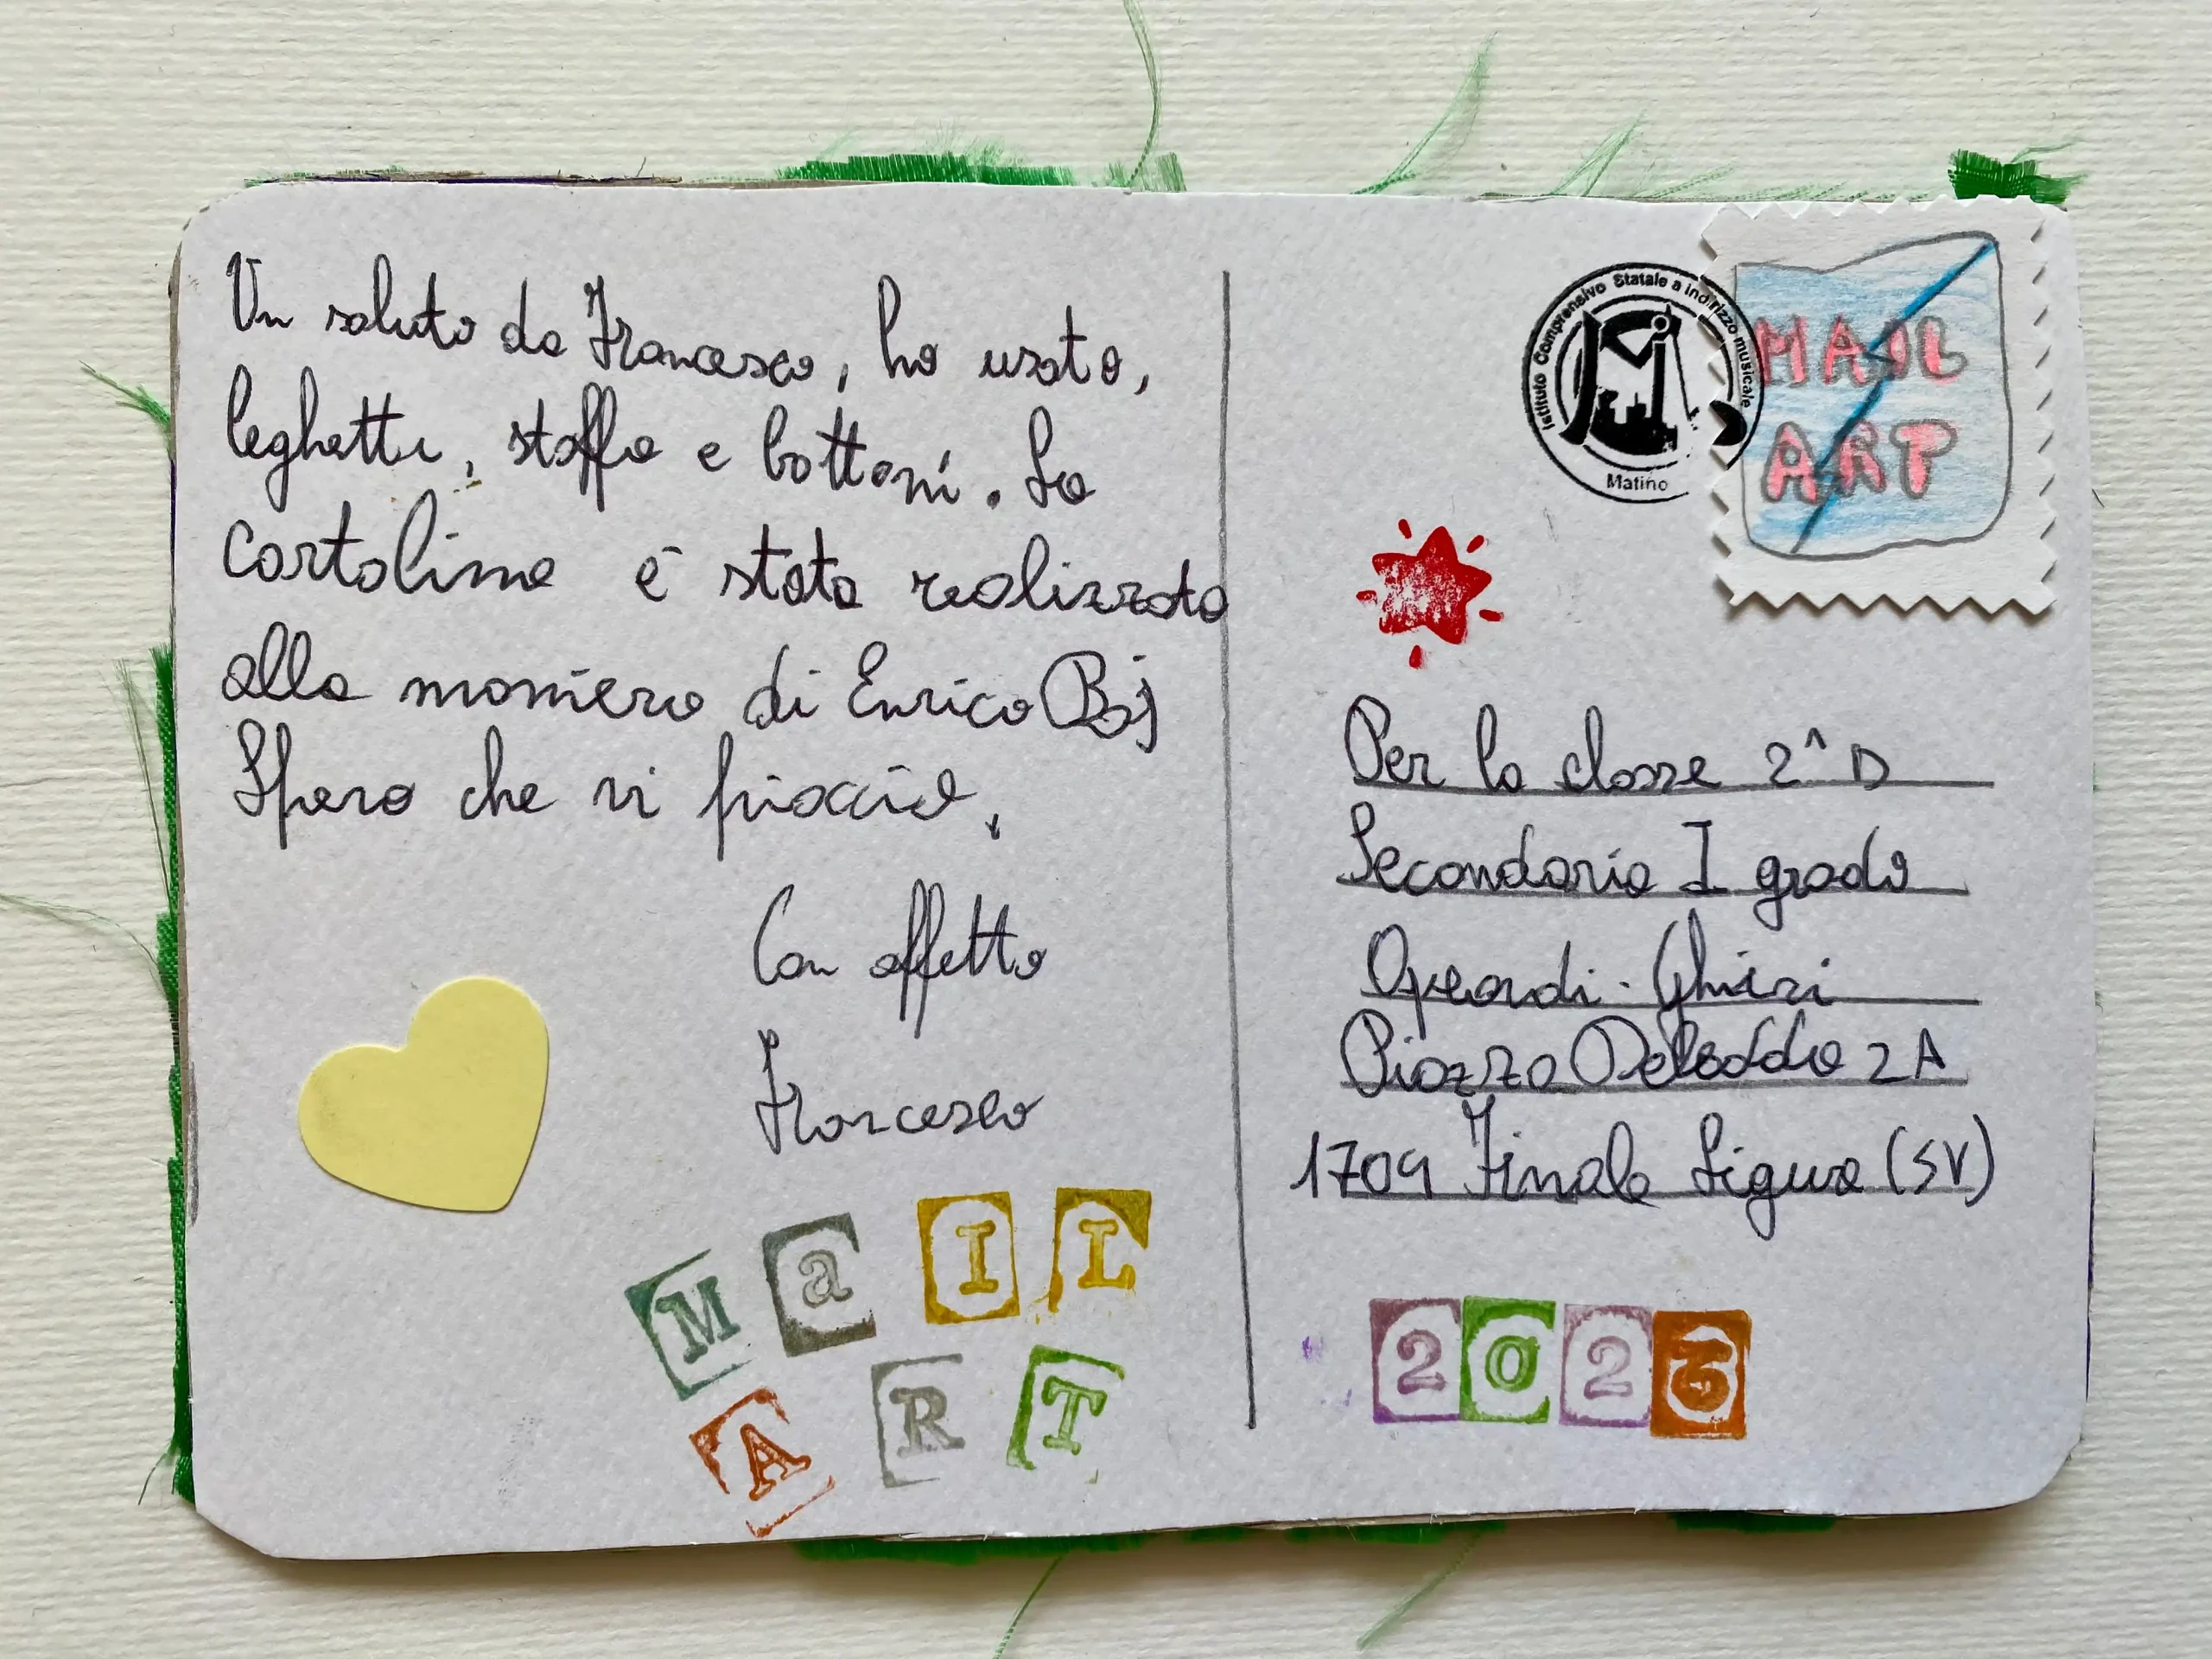 Un saluto da Francesco, ho usato,
leghetti, stoffa e bottoni. La
cartolina è stata realizzata
alla maniera di Enrico Baj
Spero che vi piaccia,
Con affetto
Francesco
MaIL
ART
Istituto Comprensivo Statale a indirizzo musicale
Matino
MAIL
ART
Per la classe 2^ D
Secondaria I grado
Aycardi-Ghiglieri